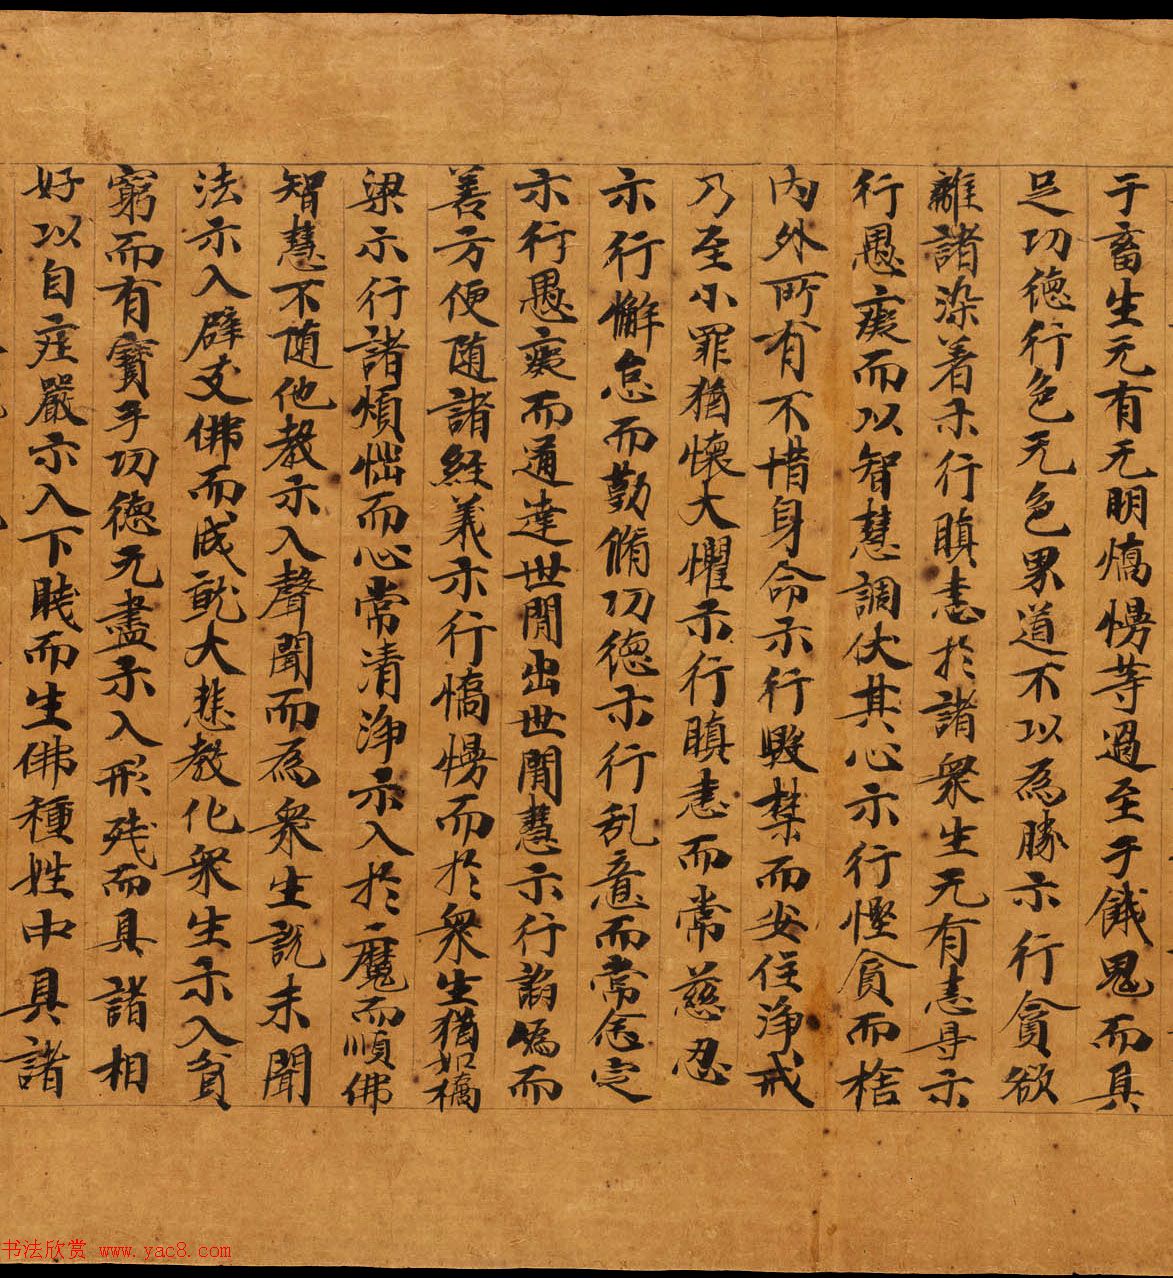 于畜生无有无明憍慢等過至于餓鬼而具
足功德行色无色界道不以為勝示行貪欲
離諸染着示行瞋恚於諸衆生无有恚㝵示
行愚癡而以智慧調伏其心示行慳貪而捨
内外所有不惜身命示行毁禁而安住淨戒
乃至小罪猶懷大懼示行瞋恚而常慈忍
示行懈怠而懃脩功德示行乱意而常念定
示行愚癡而通達世間出世間慧示行謟偽而
善方便随諸經義示行憍慢而於衆生猶如橋
梁示行諸煩惱而心常清淨示入於魔而順佛
智慧不随他教示入聲聞而為衆生説未聞
法示入辟支佛而成就大悲教化衆生示入貧
窮而有寶手功德无盡示入形残而具諸相
好以自庄嚴示入下賤而生佛種姓中具諸
书法欣赏 www.yac8.com